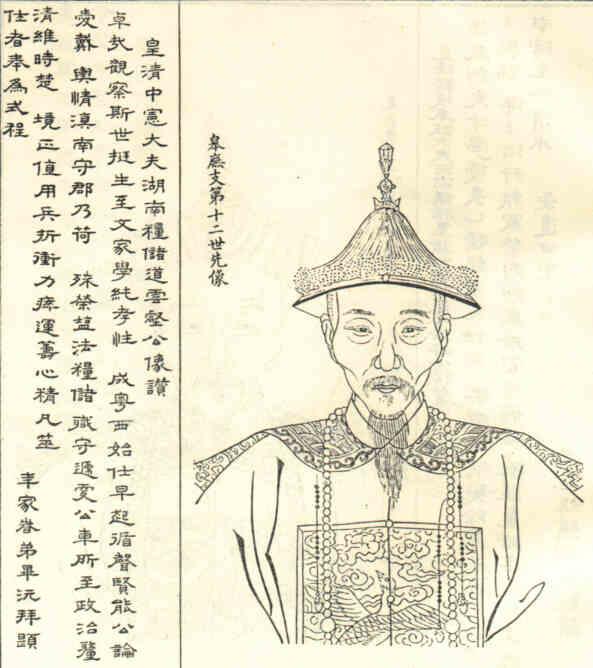 皐廡支第十二世先像
皇清中憲大夫湖南糧儲道雲壑公像讚
卓哉觀察斯世挺生至文家學純孝性 成粵西始仕早起循聲賢能公論
愛戴 輿情滇南守郡乃荷 殊榮盐法糧儲職守遞更公車所至政治釐
清維時楚 境正值用兵折衝力瘁運籌心精凡筮
仕者奉為式程
年家眷弟畢沅拜題